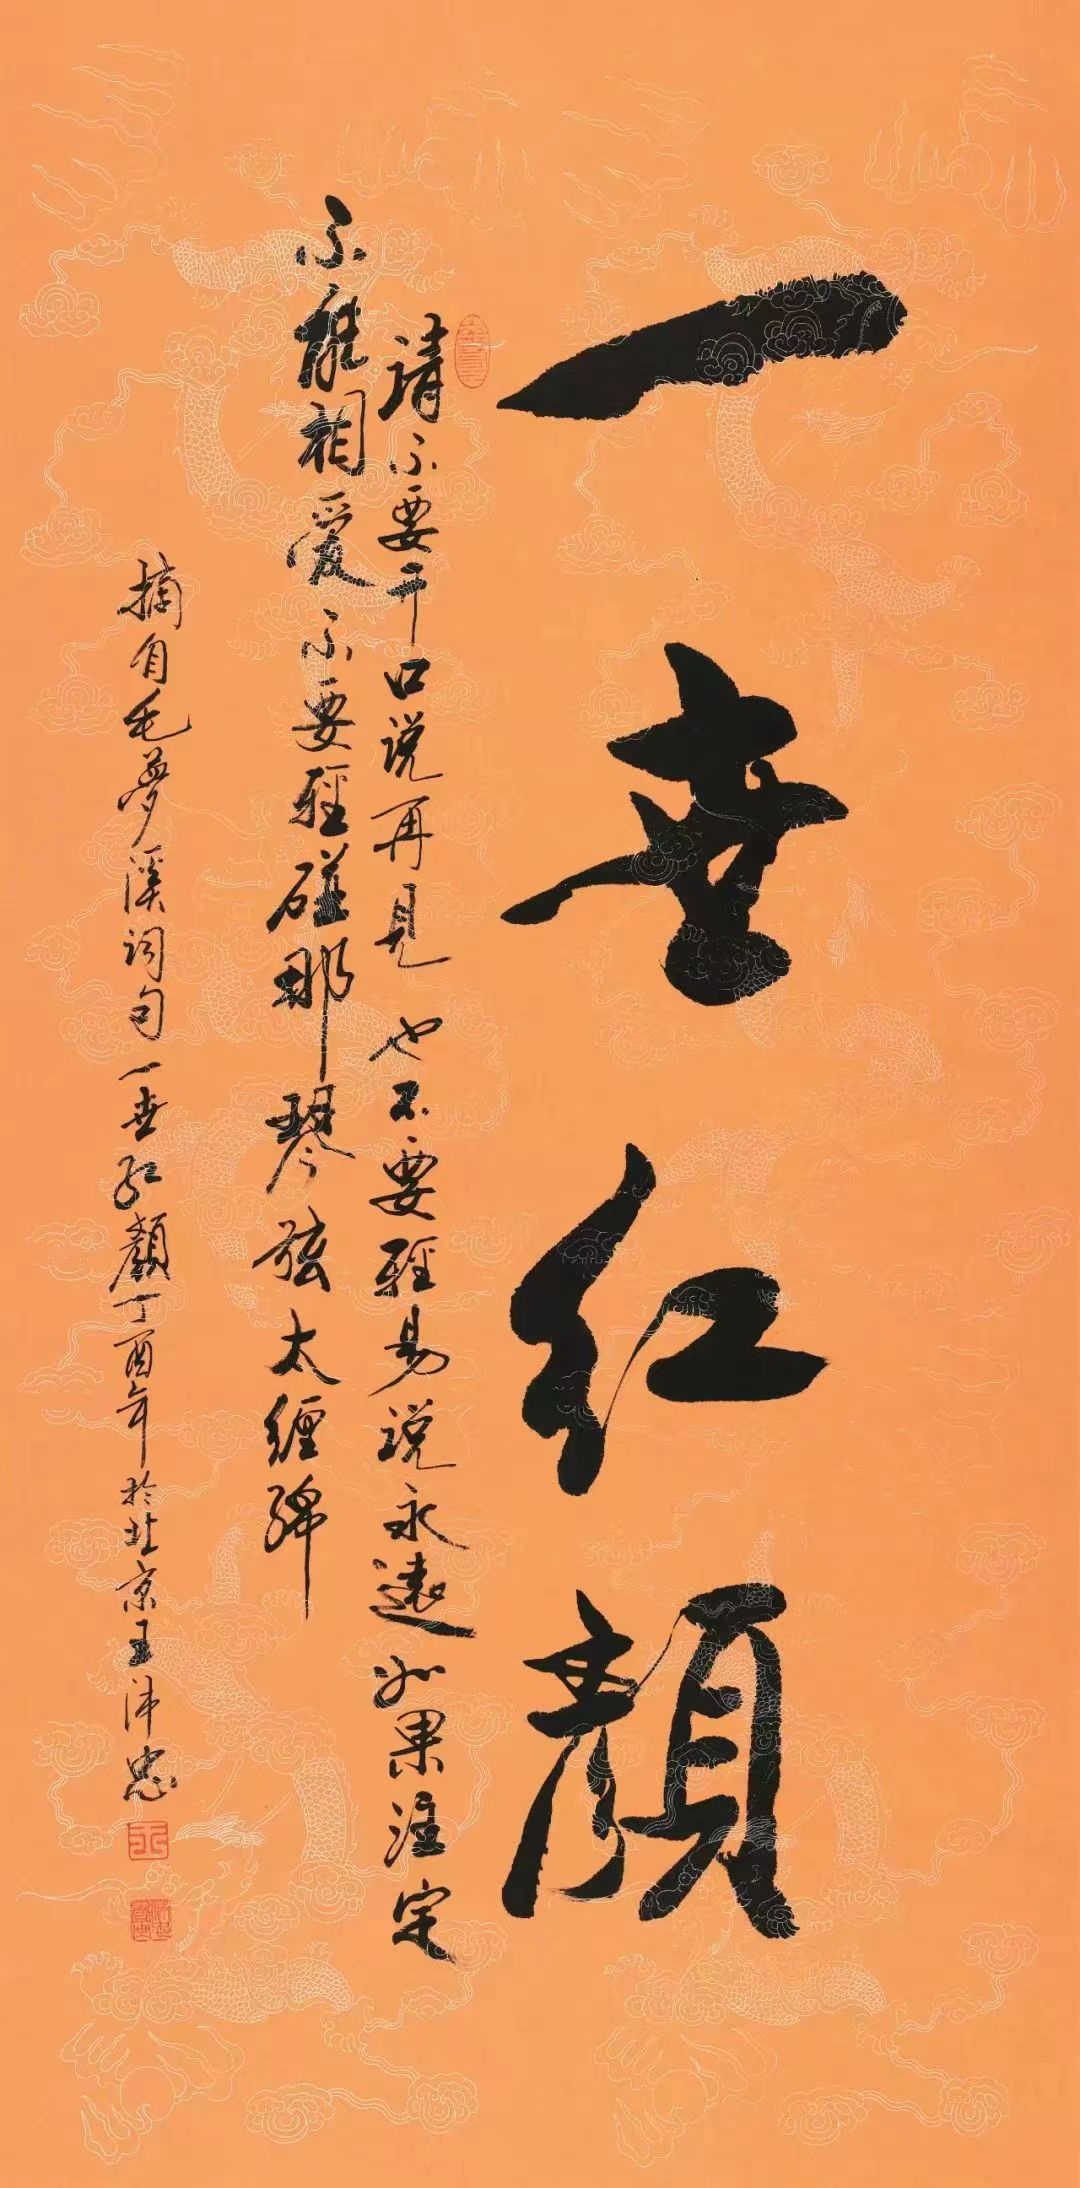 一世红颜
请不要开口说再见 也不要轻易说永远如果注定
不能相爱不要轻碰那琴弦太缠绵
摘自毛夢溪词句一世红顏丁酉年於北京王沛忠